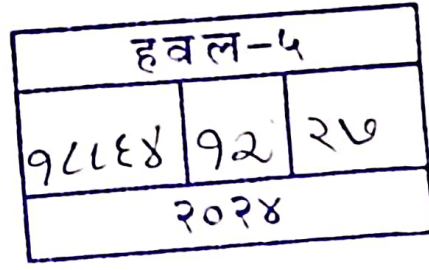 हवल-५
१८८६४ १२ २७
२०२४